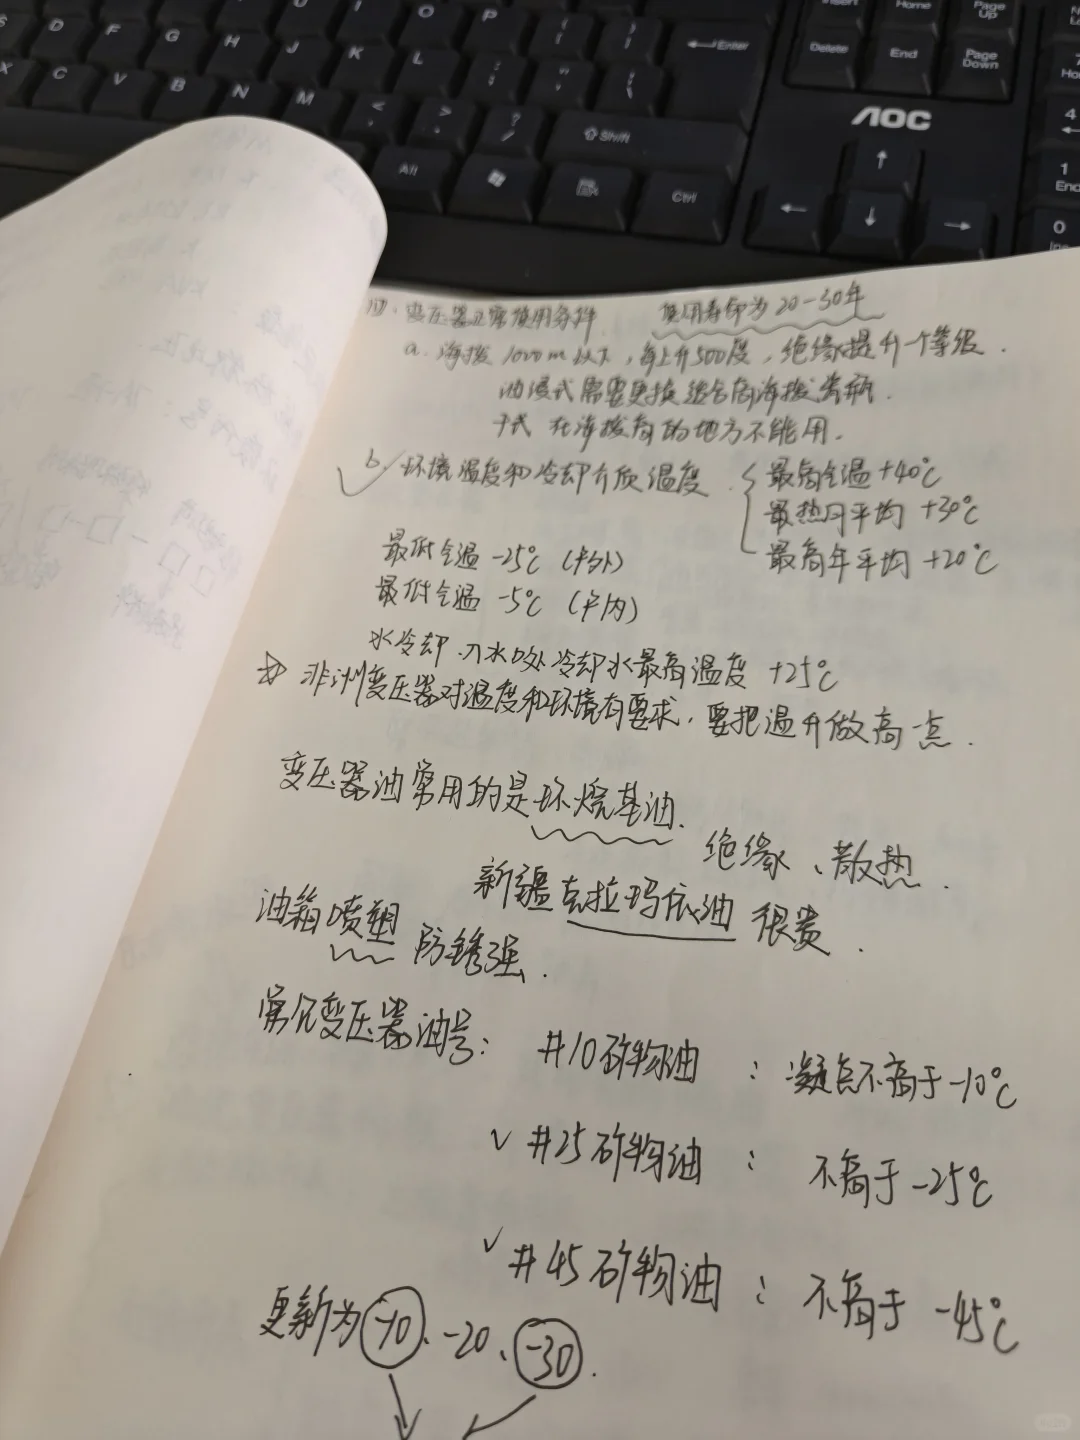 S D F G H J K L I O P Enter
X C V B N M < > ? /
Shift
Alt Ctrl
Insert Home Page Up
Delete End Page Down
AOC
4
1 End
0 Ins
四、变压器正常使用条件 使用寿命为20-30年
a. 海拔1000m以下，每上升500段，绝缘提升一个等级.
油浸式需要更换适合高海拔
干式 在海拔高的地方不能用.
b. 环境温度和冷却介质温度 最高气温+40℃
最热月平均 +30℃
最高年平均 +20℃
最低气温 -25℃ (户外)
最低气温 -5℃ (户内)
水冷却 入水口处冷却水最高温度 +25℃
非洲变压器对温度和环境有要求，要把温升做高一点.
变压器油常用的是环烷基油.
绝缘、散热.
新疆克拉玛依油 很贵.
油箱喷塑 防锈强.
常见变压器油号： #10矿物油 ： 凝点不高于-10℃
√ #25矿物油 ： 不高于-25℃
√ #45矿物油 ： 不高于 -45℃
更新为-10、-20、-30.